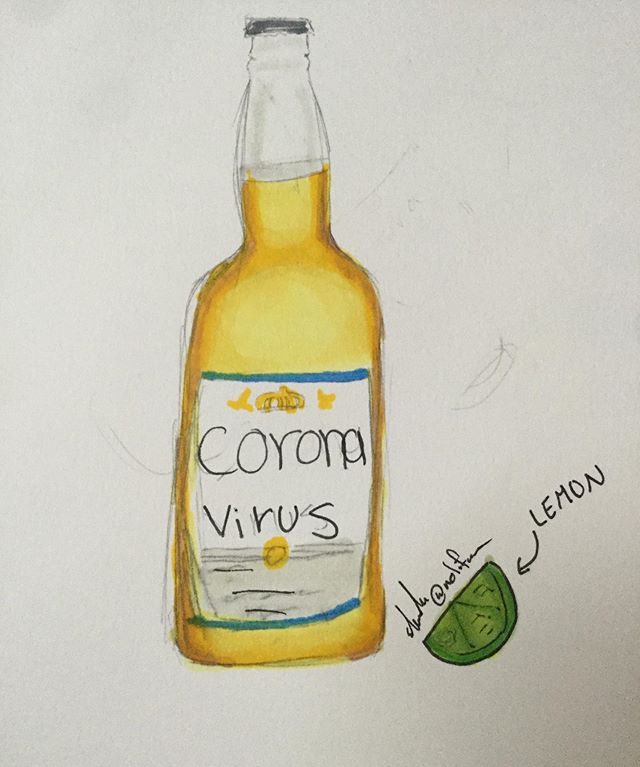 Corona
Virus
LEMON